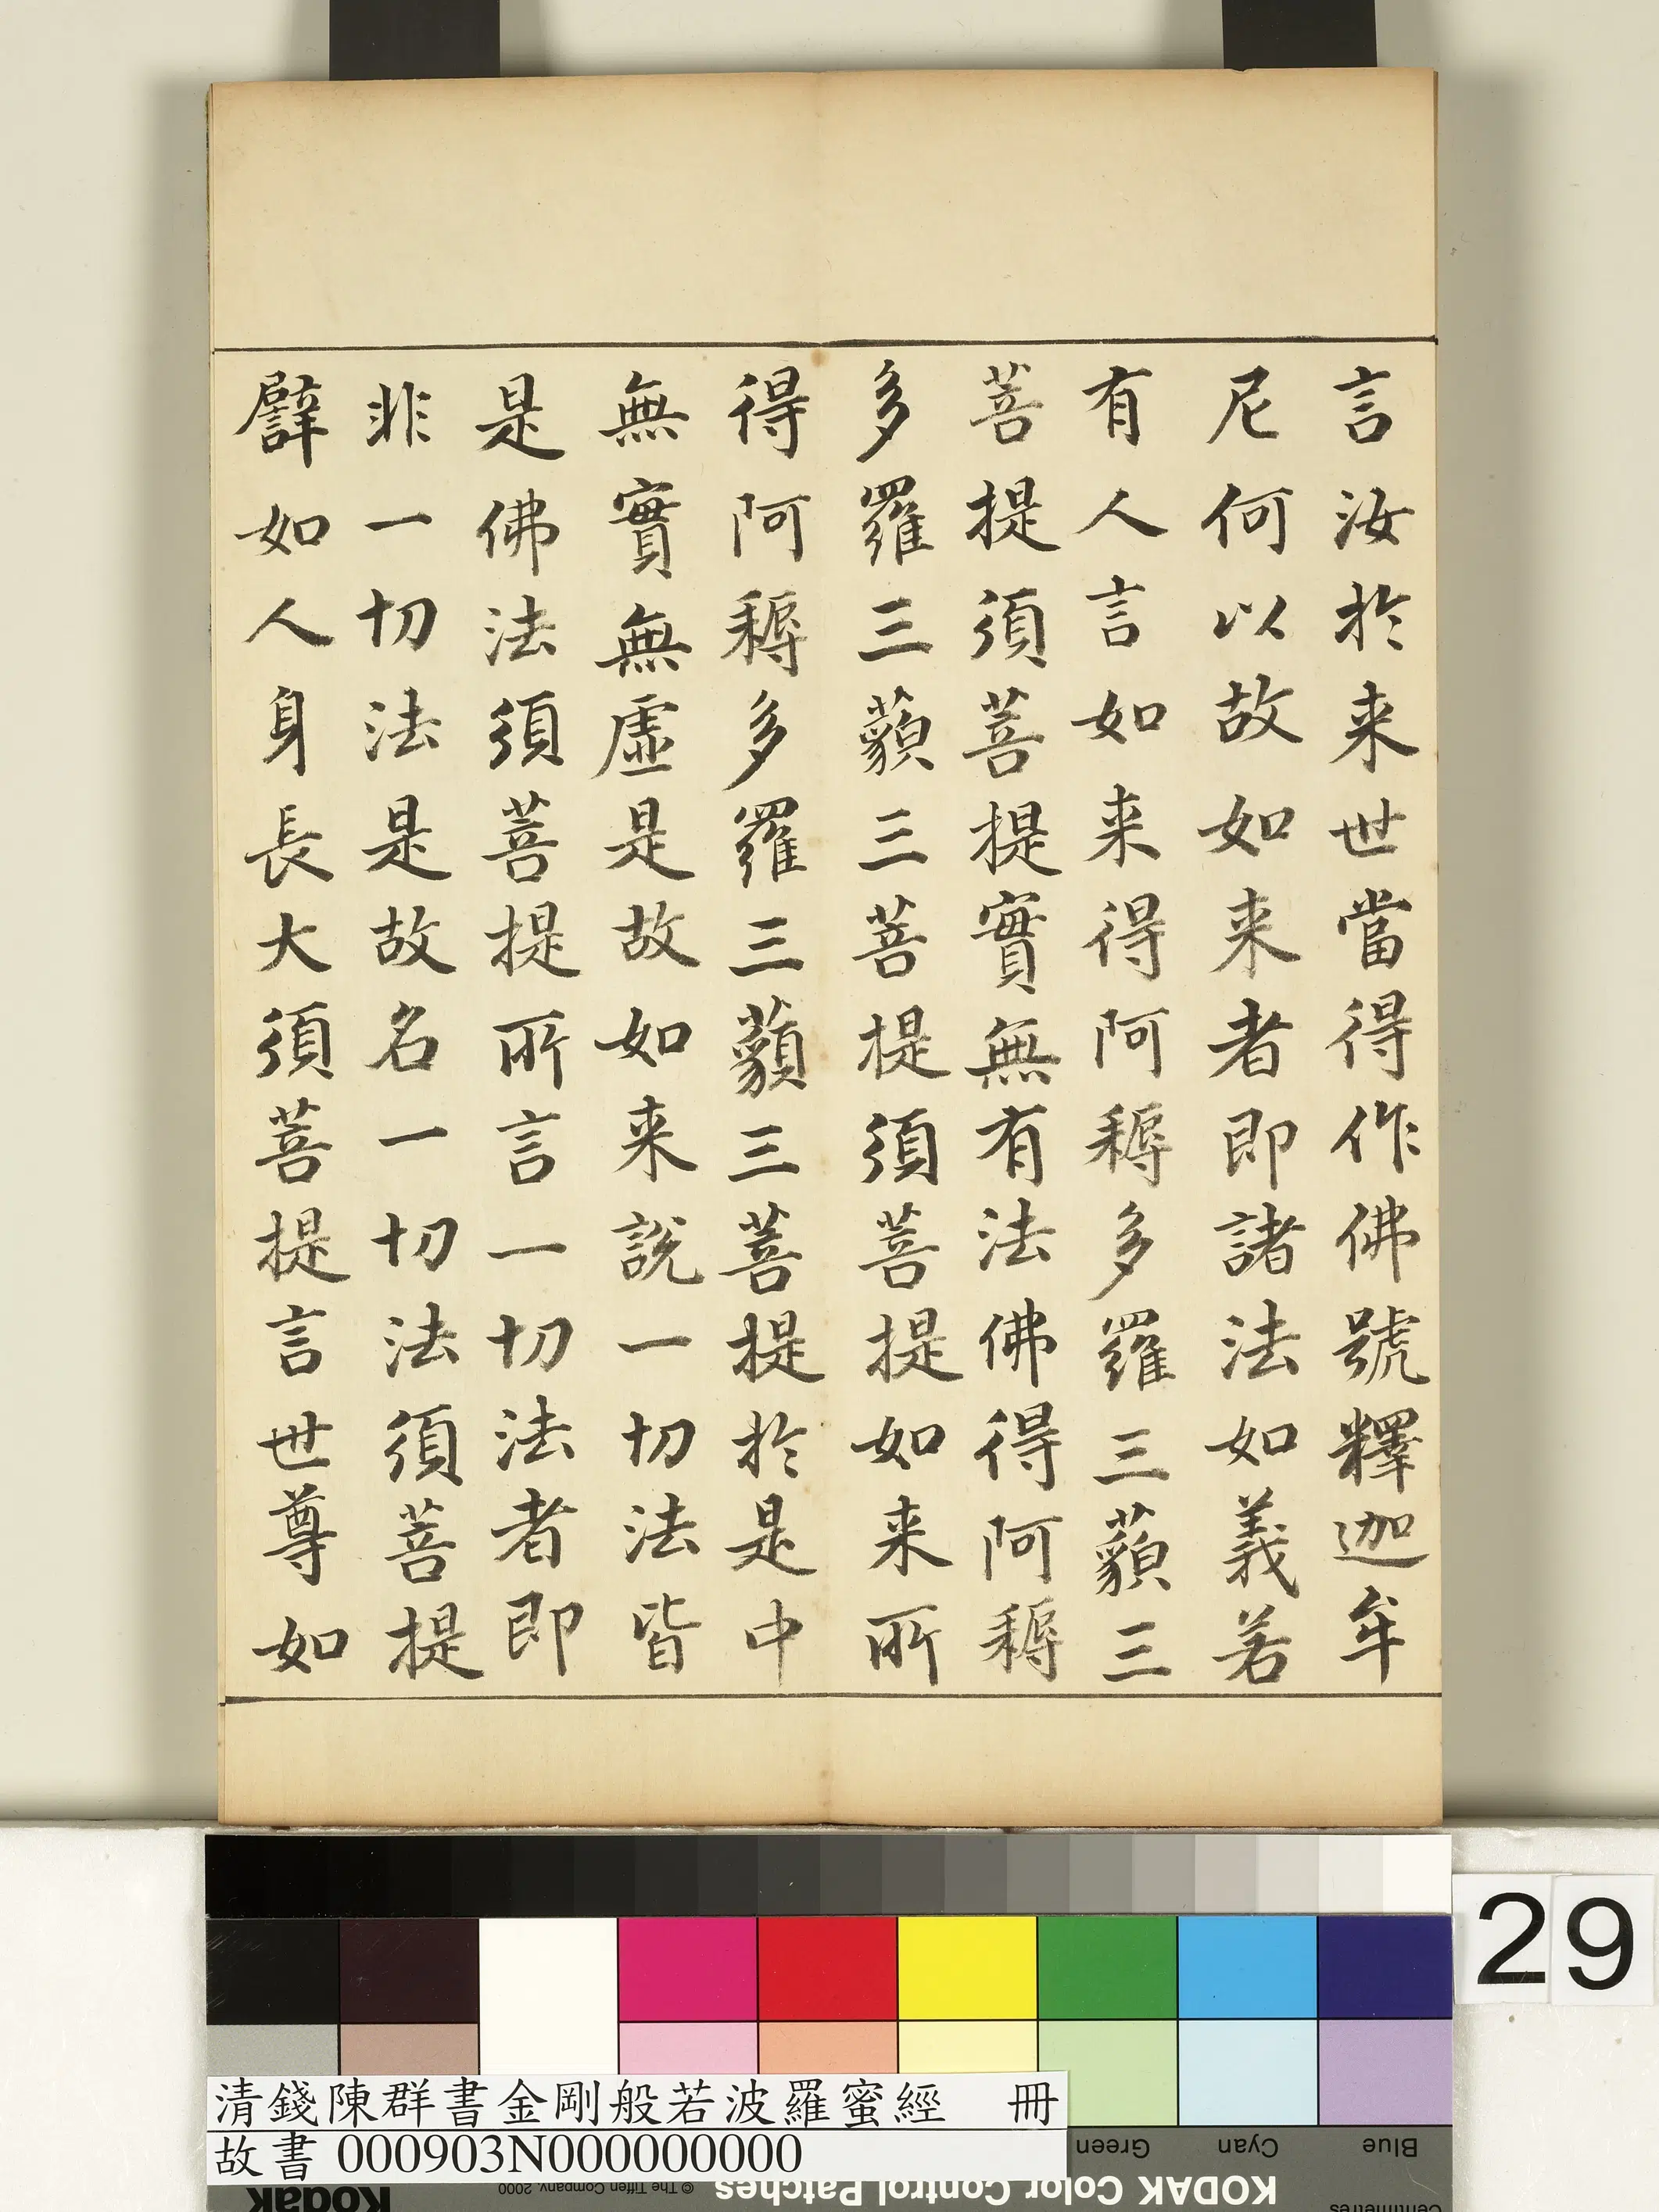 言汝於来世當得作佛號釋迦牟
尼何以故如来者即諸法如義若
有人言如来得阿耨多羅三藐三
菩提須菩提實無有法佛得阿耨
多羅三藐三菩提須菩提如来所
得阿耨多羅三藐三菩提於是中
無實無虛是故如来說一切法皆
是佛法須菩提所言一切法者即
非一切法是故名一切法須菩提
譬如人身長大須菩提言世尊如
29
清錢陳群書金剛般若波羅蜜經 冊
故書 000903N000000000
Green Cyan Blue
KODAK Color Control Patches
© The Tiffen Company, 2000
Kodak
Centimetres